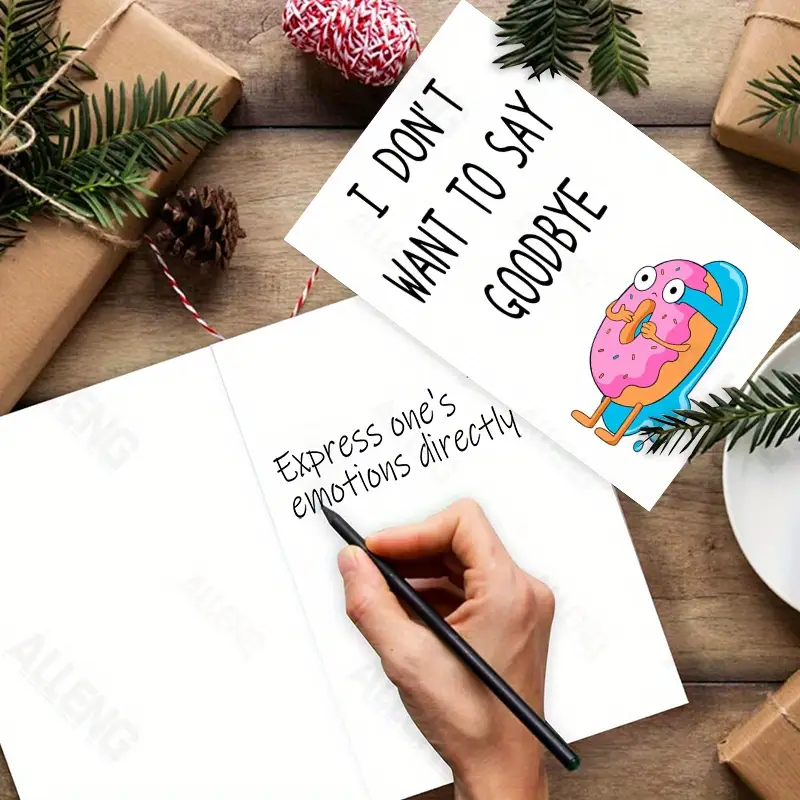 I DON'T
WANT TO SAY
GOODBYE
Express one's
emotions directly
ALLENG
ALLENG
ALLENG
ALLENG
ALLENG